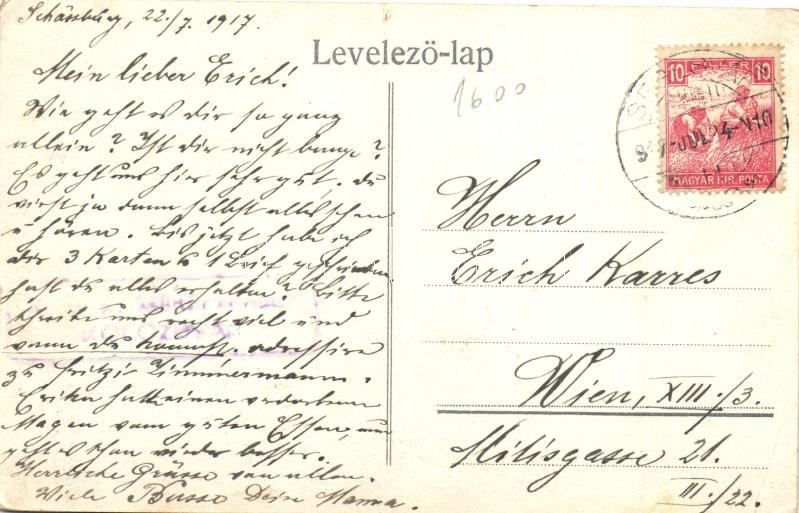 Schässburg, 22./7. 1917.
Levelező-lap
Mein lieber Erich!
Wie geht es dir so ganz
allein? Ist dir nicht bange?
Es geht uns hier sehr gut. du
wirst ja dann selbst alles sehen
u hören. Bis jetzt habe ich
dir 3 Karten u 1 Brief geschrieben
hast du alles erhalten? Bitte
schreibe uns recht viel und
wann du kommst. adressire
zu Fritzi Zimmermann.
Erika hatte einen verdorbenen
Magen vom guten Essen, nun
geht es schon wieder besser.
Herzliche Grüsse von allen.
Viele Busse Deine Mama.
1600
10 FILLÉR 10
MAGYAR KIR. POSTA
Herrn
Erich Karres
Wien, XIII./3.
Mitisgasse 21.
III./22.